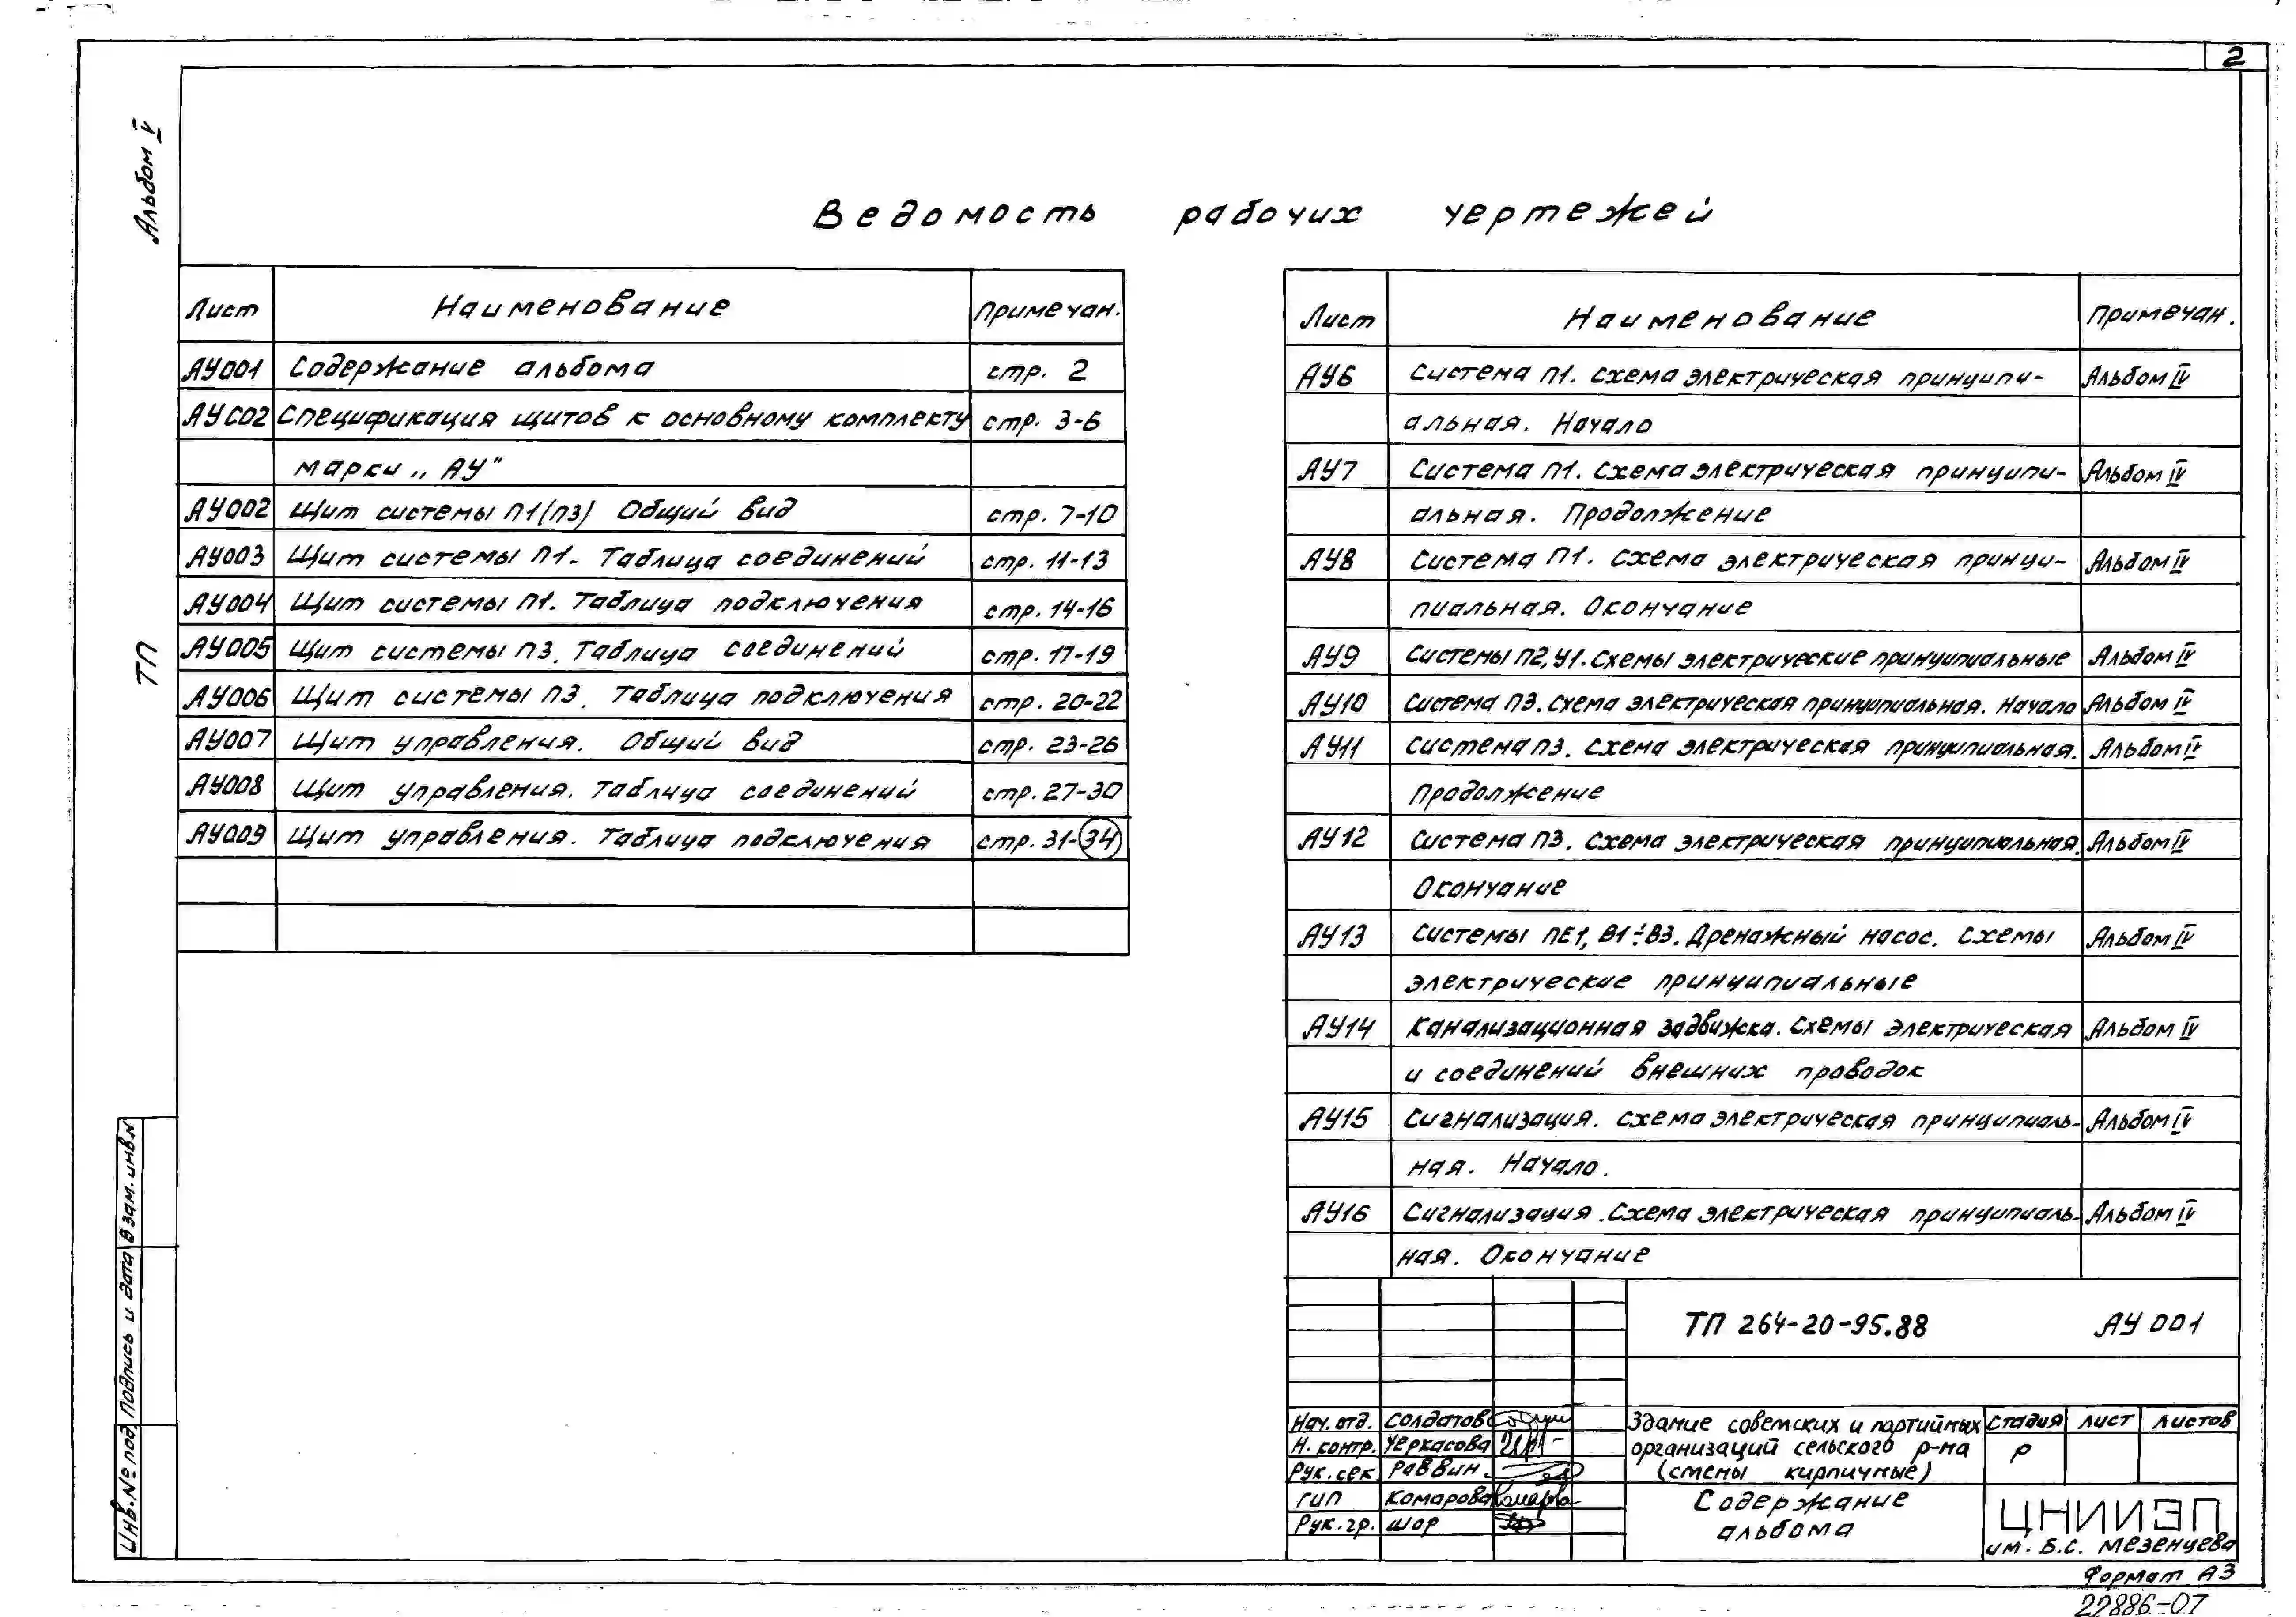 2
Альбом V
ТП
Ведомость рабочих чертежей
Лист Наименование Примечан.
АУ001 Содержание альбома стр. 2
АУС02 Спецификация щитов к основному комплекту стр. 3-6
марки „АУ"
АУ002 Щит системы П1(П3) Общий вид стр. 7-10
АУ003 Щит системы П1. Таблица соединений стр. 11-13
АУ004 Щит системы П1. Таблица подключения стр. 14-16
АУ005 Щит системы П3. Таблица соединений стр. 17-19
АУ006 Щит системы П3. Таблица подключения стр. 20-22
АУ007 Щит управления. Общий вид стр. 23-26
АУ008 Щит управления. Таблица соединений стр. 27-30
АУ009 Щит управления. Таблица подключения стр. 31-34
Лист Наименование Примечан.
АУ6 Система П1. Схема электрическая принципи- Альбом IV
альная. Начало
АУ7 Система П1. Схема электрическая принципи- Альбом IV
альная. Продолжение
АУ8 Система П1. Схема электрическая принци- Альбом IV
пиальная. Окончание
АУ9 Системы П2, У1. Схемы электрические принципиальные Альбом IV
АУ10 Система П3. Схема электрическая принципиальная. Начало Альбом IV
АУ11 Система П3. Схема электрическая принципиальная. Альбом IV
Продолжение
АУ12 Система П3. Схема электрическая принципиальная. Альбом IV
Окончание
АУ13 Системы ПЕ1, В1÷В3. Дренажный насос. Схемы Альбом IV
электрические принципиальные
АУ14 Канализационная задвижка. Схемы электрическая Альбом IV
и соединений внешних проводок
АУ15 Сигнализация. Схема электрическая принципиаль- Альбом IV
ная. Начало.
АУ16 Сигнализация. Схема электрическая принципиаль- Альбом IV
ная. Окончание
ТП 264-20-95.88 АУ 001
Нач. отд. Солдатов
Н. контр. Черкасова
Рук. сек. Раввин.
ГИП Комарова Комарова
Рук. гр. Шор
Здание советских и партийных
организаций сельского р-на
(стены кирпичные)
Стадия Лист Листов
Р
Содержание
альбома
ЦНИИЭП
им. Б.С. Мезенцева
Инв. № под. Подпись и дата Взам. инв N
Формат А3
22886-07